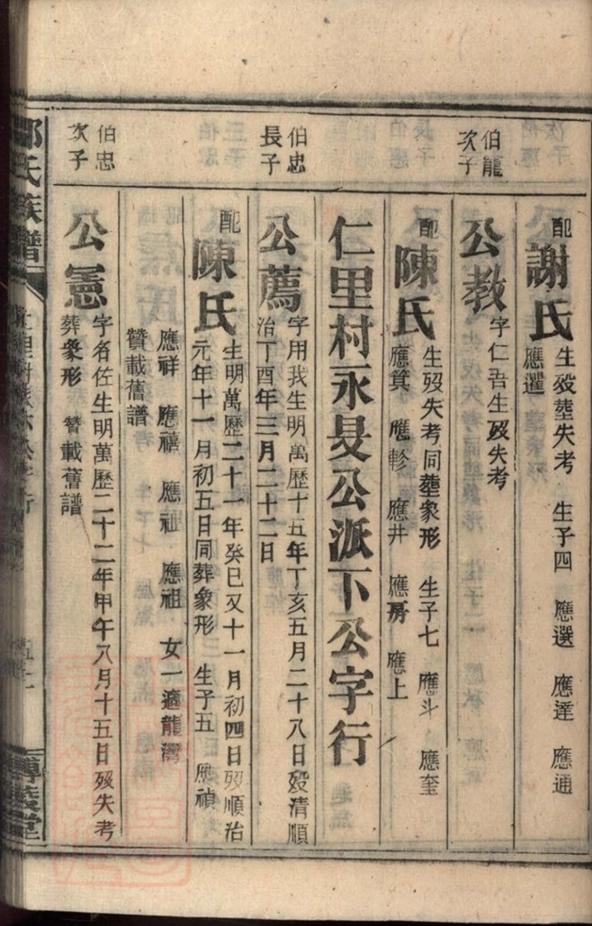 配
謝氏
生歿塟失考　生子四　應選　應達　應通
應暹
伯龍
次子
公教
字仁吾生歿失考
配
陳氏
生歿失考同塟象形　生子七　應斗　應奎
應箕　應軫　應井　應房　應上
仁里村永旻公派下公字行
伯忠
長子
公薦
字用我生明萬歷十五年丁亥五月二十八日歿清順
治丁酉年三月二十二日
配
陳氏
生明萬歷二十一年癸巳又十一月初四日歿順治
元年十一月初五日同葬象形　生子五　應禎
應祥　應禧　應祉　應祖　女一適龍灣
贊載舊譜
伯忠
次子
公憲
字名佐生明萬歷二十二年甲午八月十五日歿失考
葬象形　贊載舊譜
氏族譜